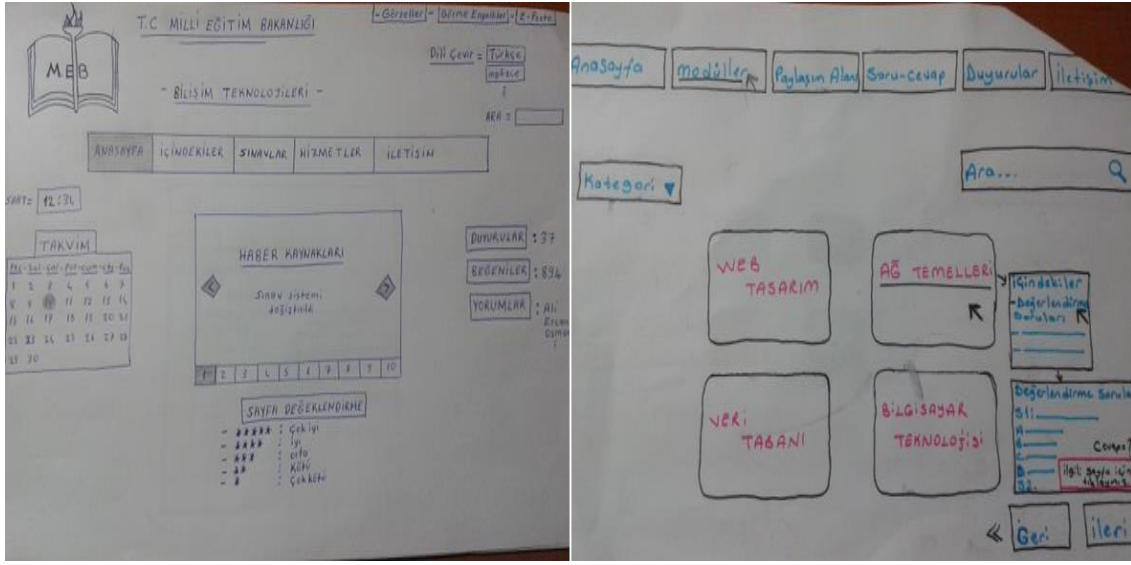 T.C MİLLİ EĞİTİM BAKANLIĞI
- Görseller - Görme Engelliler - E-Posta
MEB
Dili Çevir = Türkçe
- BİLİŞİM TEKNOLOJİLERİ -
ARA =
ANASAYFA İÇİNDEKİLER SINAVLAR HİZMETLER İLETİŞİM
SAAT= 12:34
TAKVİM
1 2 3 4 5 6 7
8 9 11 12 13 14
15 16 17 18 19 20 21
22 23 24 25 26 27 28
29 30
HABER KAYNAKLARI
Sınav sistemi
değiştirildi
1 2 3 4 5 6 7 8 9 10
DUYURULAR : 37
BEĞENİLER : 894
YORUMLAR : Ali
Ercan
Osman
SAYFA DEĞERLENDİRME
- ***** : Çok iyi
- **** : İyi
- *** : orta
- ** : Kötü
- * : Çok kötü
Anasayfa Modüller Paylaşım Alanı Soru-cevap Duyurular İletişim
Kategori ▼
Ara...
WEB
TASARIM
AĞ TEMELLERİ
İçindekiler
- Değerlendirme
Soruları
VERİ
TABANI
BİLGİSAYAR
TEKNOLOJİSİ
Değerlendirme Sorula
S1:
A
B
C
D
Cevap?
S2.
ilgili sayfa için
tıklayınız
« Geri ileri